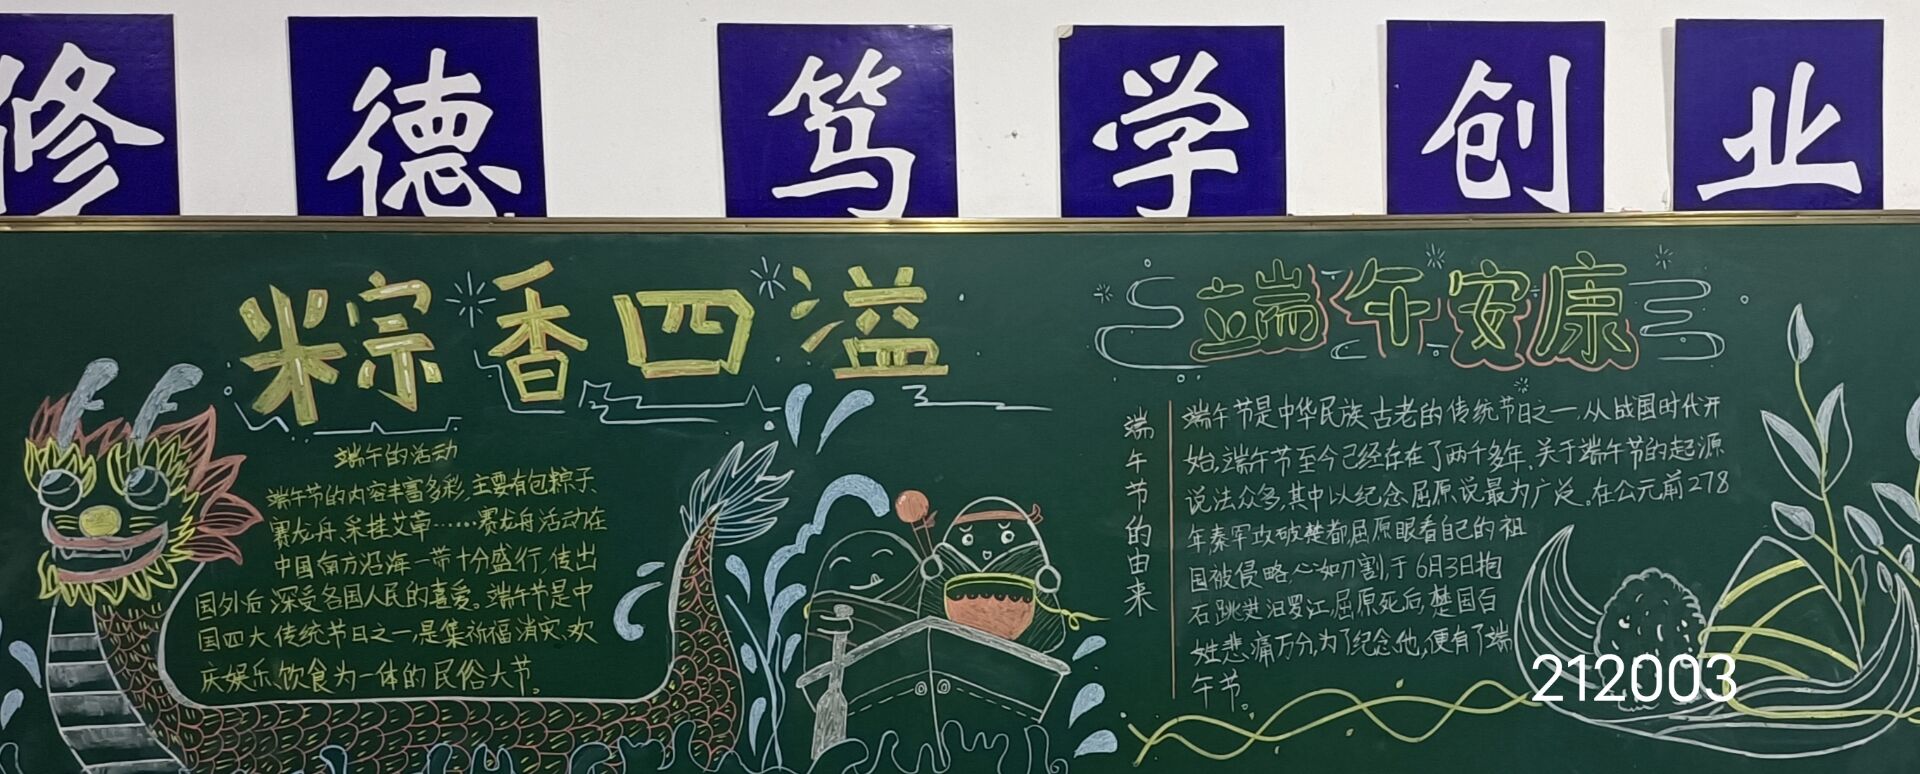 修德 笃学 创业
粽香四溢
端午的活动
端午节的内容丰富多彩,主要有包粽子、
赛龙舟、采挂艾草……赛龙舟活动在
中国南方沿海一带十分盛行,传出
国外后深受各国人民的喜爱。端午节是中
国四大传统节日之一,是集祈福消灾、欢
庆娱乐、饮食为一体的民俗大节。
端午安康
端午节的由来
端午节是中华民族古老的传统节日之一,从战国时代开
始,端午节至今已经存在了两千多年,关于端午节的起源
说法众多,其中以纪念屈原说最为广泛。在公元前278
年秦军攻破楚都屈原眼看自己的祖
国被侵略,心如刀割,于6月3日抱
石跳进汨罗江,屈原死后,楚国百
姓悲痛万分,为了纪念他,便有了端
午节。
212003